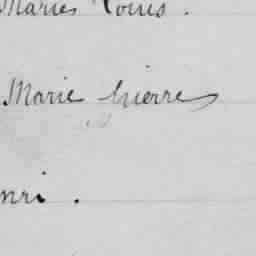 Maries Louis.
Marie Pierre
nri.